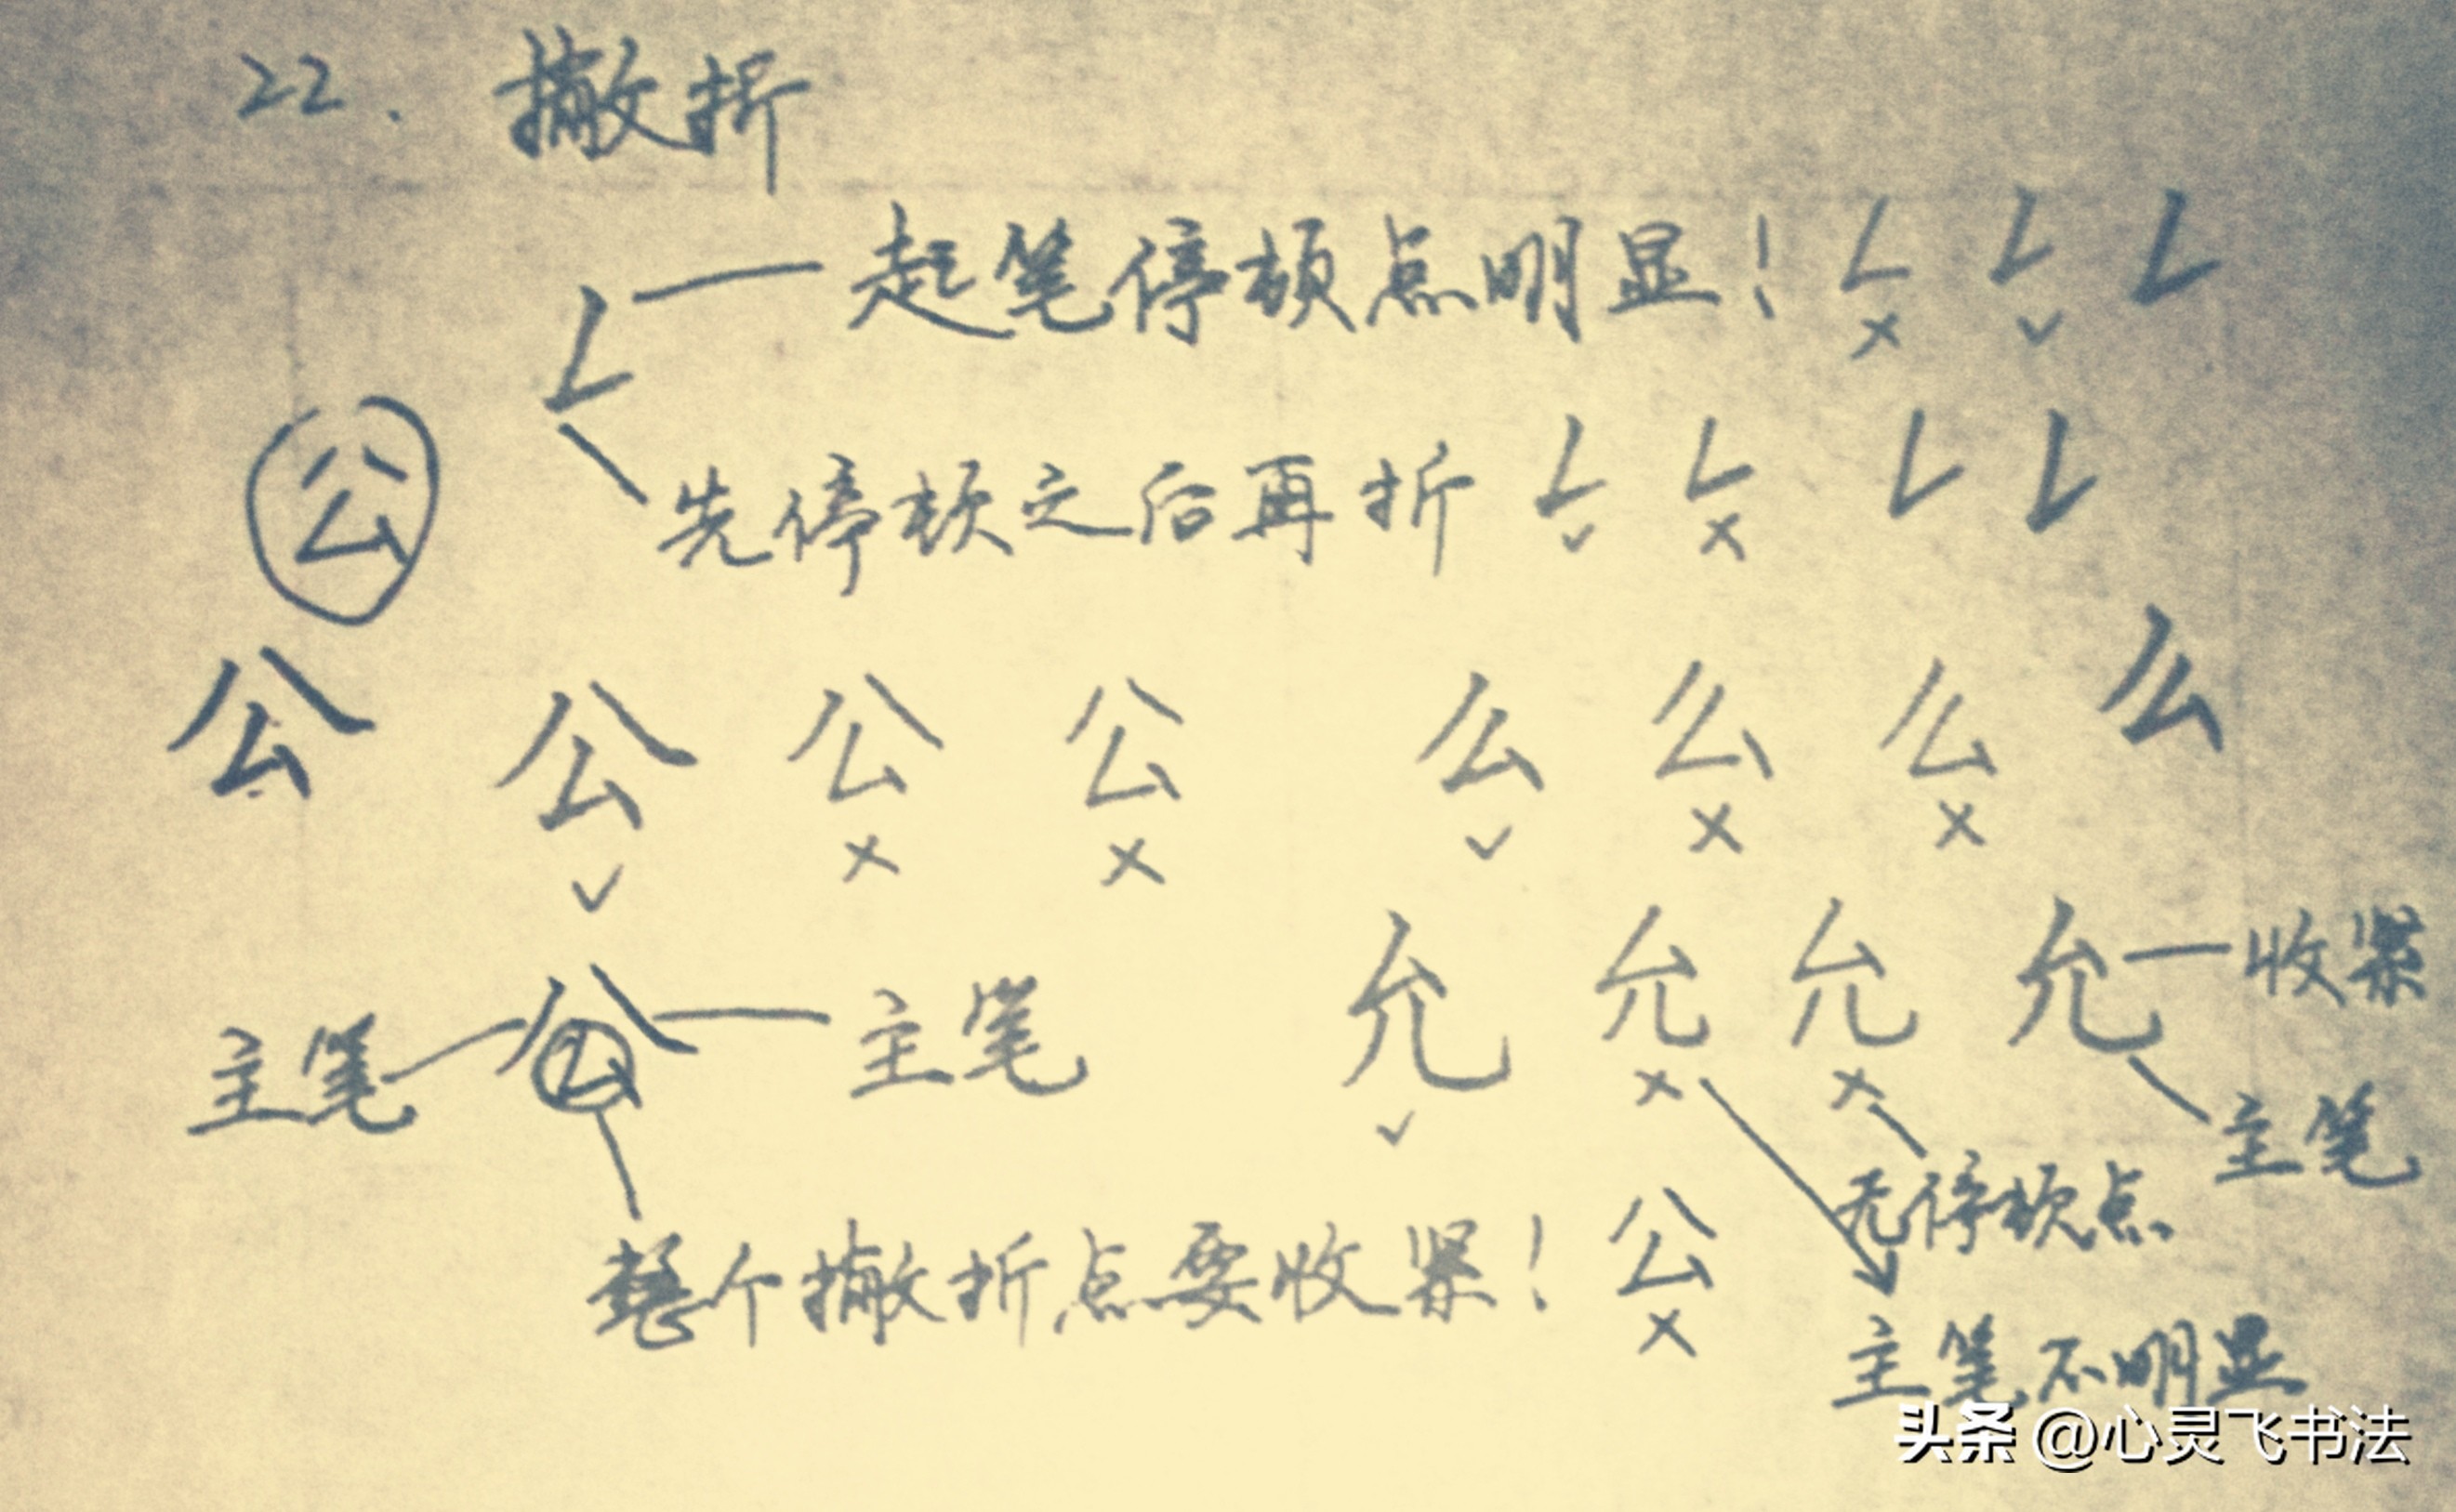 22. 撇折
起笔停顿点明显！ ㄥ ㄥ ㄥ
× ✓
公
先停顿之后再折 ㄥ ㄥ ㄥ ㄥ
✓ ×
公 公 公 公 么 么 么 么
✓ × × ✓ × ×
主笔 公 主笔 允 允 允 允 收紧
✓ × × 主笔
无停顿点
整个撇折点要收紧！ 公
×
主笔不明显
头条 @心灵飞书法